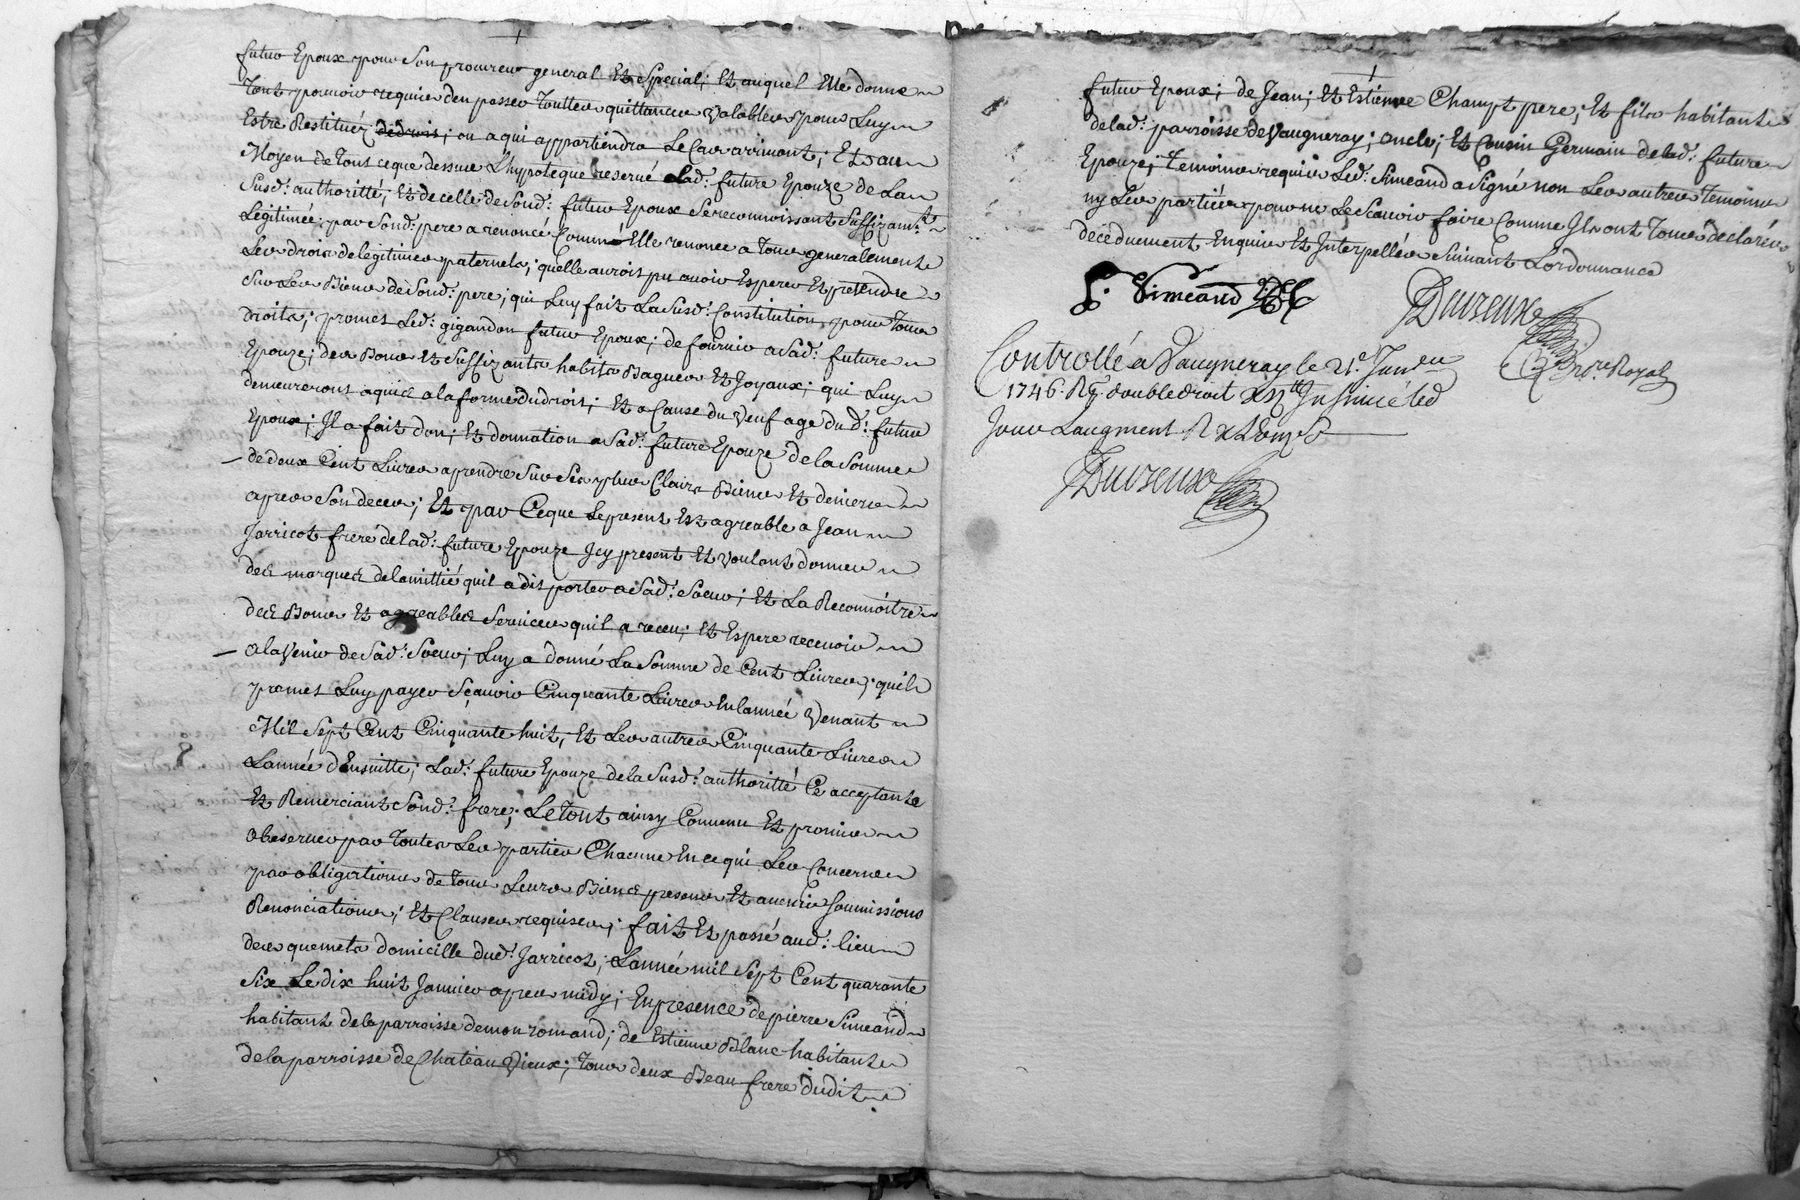 futur Epoux pour Son procureur general Et Special; Et auquel Elle donne
Tout pouvoir requis den passer Touttes quittances Valables pour Luy
Estre Restituéz ; ou a qui appartiendra Le Cas arrivant; Et au
Moyen de Tout ceque dessus L'hypoteque reservé Lad: future Epouze de La
Susd: authorittè; Et de celle de Sond: futur Epoux Se reconnoissant Suffizamt
Legitimée par Sond: pere a renoncé Comme Elle renonce a Tous generalement
Les droits de legitimes paternels; quelle aurois pu avoir Esperer Et pretendre
Sur Les Biens de Sond: pere; qui Luy fait La Susd: Constitution pour Tous
droits; promet Led: gigandon futur Epoux; de fournir a Sad: future
Epouze; des Bons Et Suffizants habits Bagues Et Joyaux; qui Luy
demeureront aquis a la forme du droit; Et a Cause du Veufage dud: futur
Epoux; Il a fait don; Et donnation a Sad: future Epouze de la Somme
de deux Cent Livres a prendre Sur Ses plus Clairs Biens Et deniers
apres Son deces; Et par Ceque Le present Est agreable a Jean
Jarricot frere de lad: future Epouze Jcy present Et voulant donner
des marques delamittié quil a dit porter a Sad: Soeur; Et La Reconnoitre
des Bons Et agreables Services quil a receu; Et Espere recevoir
a lavenir de Sad: Soeur; Luy a donné La Somme de Cent Livres; quil
promet Luy payer Sçavoir Cinquante Livres En lannée Venant
Mil Sept Cent Cinquante huit; Et Les autres Cinquante Livres
Lannée d'Ensuitte; Lad: future Epouze de la Susd: authorittè Ce acceptante
Et Remerciant Sond: frere; Le Tout ainsy Convenu Et promis
observer par Toutes Les parties Chacune En ce qui Les Concerne
par obligations de Tous Leurs Biens presens Et avenir Soumissions
Renonciations; Et Clauses requises; fait Et passé aud: lieu
des quemets domicille dud: Jarricot; Lannée mil Sept Cent quarante
Six Le dix huit Janvier apres midy; En presence de pierre Simeand
habitant de la parroisse de mon romand; de Estienne Blanc habitant
de la parroisse de Chateau Vieux; Tous deux Beau frere dudit
futur Epoux; de Jean; Et Estienne Champt pere; Et fils habitants
de lad: parroisse de Vaugneray; oncle; Et Cousin Germain de lad: future
Epouze; Temoins requis Led: Simeand a Signé non Les autres Temoins
ny Les parties pour ne Le Scavoir faire Comme Ils ont Tous declarés
decéduement Enquis Et Interpellés Suivant Lordonnance
P. Simeand
Duvreux
Nore Royal
Controllé a Vaugneray le 21e Janvier
1746. Rç double droit Insinué led
Jour Laugment
Duvreux